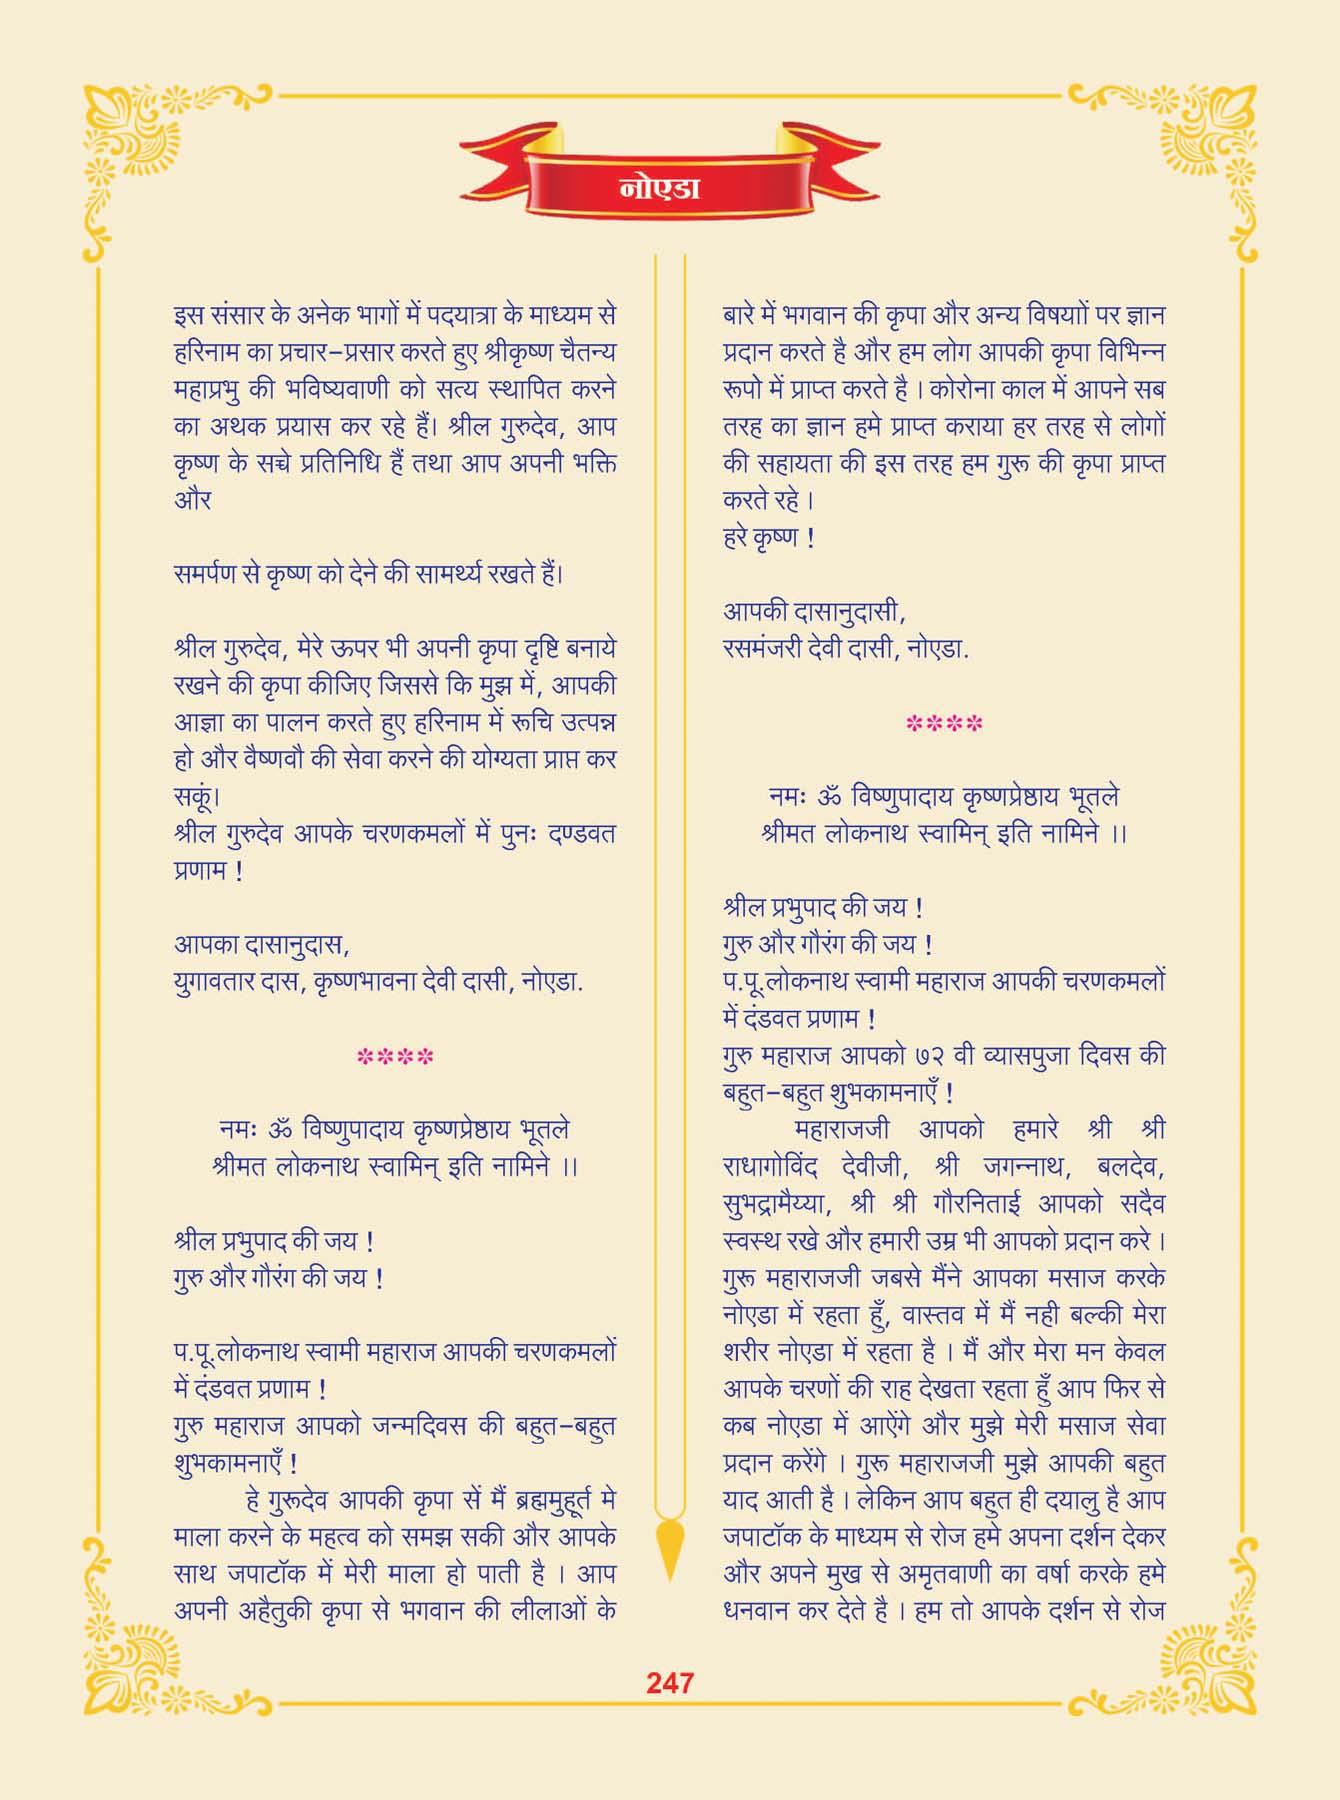 नोएडा
इस संसार के अनेक भागों में पदयात्रा के माध्यम से
हरिनाम का प्रचार-प्रसार करते हुए श्रीकृष्ण चैतन्य
महाप्रभु की भविष्यवाणी को सत्य स्थापित करने
का अथक प्रयास कर रहे हैं। श्रील गुरुदेव, आप
कृष्ण के सच्चे प्रतिनिधि हैं तथा आप अपनी भक्ति
और
समर्पण से कृष्ण को देने की सामर्थ्य रखते हैं।
श्रील गुरुदेव, मेरे ऊपर भी अपनी कृपा दृष्टि बनाये
रखने की कृपा कीजिए जिससे कि मुझ में, आपकी
आज्ञा का पालन करते हुए हरिनाम में रूचि उत्पन्न
हो और वैष्णवौ की सेवा करने की योग्यता प्राप्त कर
सकूं।
श्रील गुरुदेव आपके चरणकमलों में पुनः दण्डवत
प्रणाम !
आपका दासानुदास,
युगावतार दास, कृष्णभावना देवी दासी, नोएडा.
****
नमः ॐ विष्णुपादाय कृष्णप्रेष्ठाय भूतले
श्रीमत लोकनाथ स्वामिन् इति नामिने ।।
श्रील प्रभुपाद की जय !
गुरु और गौरंग की जय !
प.पू.लोकनाथ स्वामी महाराज आपकी चरणकमलों
में दंडवत प्रणाम !
गुरु महाराज आपको जन्मदिवस की बहुत-बहुत
शुभकामनाएँ !
हे गुरूदेव आपकी कृपा सें मैं ब्रह्ममुहूर्त मे
माला करने के महत्व को समझ सकी और आपके
साथ जपाटॉक में मेरी माला हो पाती है । आप
अपनी अहैतुकी कृपा से भगवान की लीलाओं के
बारे में भगवान की कृपा और अन्य विषयाों पर ज्ञान
प्रदान करते है और हम लोग आपकी कृपा विभिन्न
रूपो में प्राप्त करते है । कोरोना काल में आपने सब
तरह का ज्ञान हमे प्राप्त कराया हर तरह से लोगों
की सहायता की इस तरह हम गुरू की कृपा प्राप्त
करते रहे ।
हरे कृष्ण !
आपकी दासानुदासी,
रसमंजरी देवी दासी, नोएडा.
****
नमः ॐ विष्णुपादाय कृष्णप्रेष्ठाय भूतले
श्रीमत लोकनाथ स्वामिन् इति नामिने ।।
श्रील प्रभुपाद की जय !
गुरु और गौरंग की जय !
प.पू.लोकनाथ स्वामी महाराज आपकी चरणकमलों
में दंडवत प्रणाम !
गुरु महाराज आपको ७२ वी व्यासपुजा दिवस की
बहुत-बहुत शुभकामनाएँ !
महाराजजी आपको हमारे श्री श्री
राधागोविंद देवीजी, श्री जगन्नाथ, बलदेव,
सुभद्रामैय्या, श्री श्री गौरनिताई आपको सदैव
स्वस्थ रखे और हमारी उम्र भी आपको प्रदान करे ।
गुरू महाराजजी जबसे मैंने आपका मसाज करके
नोएडा में रहता हुँ, वास्तव में मैं नही बल्की मेरा
शरीर नोएडा में रहता है । मैं और मेरा मन केवल
आपके चरणों की राह देखता रहता हुँ आप फिर से
कब नोएडा में आऐंगे और मुझे मेरी मसाज सेवा
प्रदान करेंगे । गुरू महाराजजी मुझे आपकी बहुत
याद आती है । लेकिन आप बहुत ही दयालु है आप
जपाटॉक के माध्यम से रोज हमे अपना दर्शन देकर
और अपने मुख से अमृतवाणी का वर्षा करके हमे
धनवान कर देते है । हम तो आपके दर्शन से रोज
247